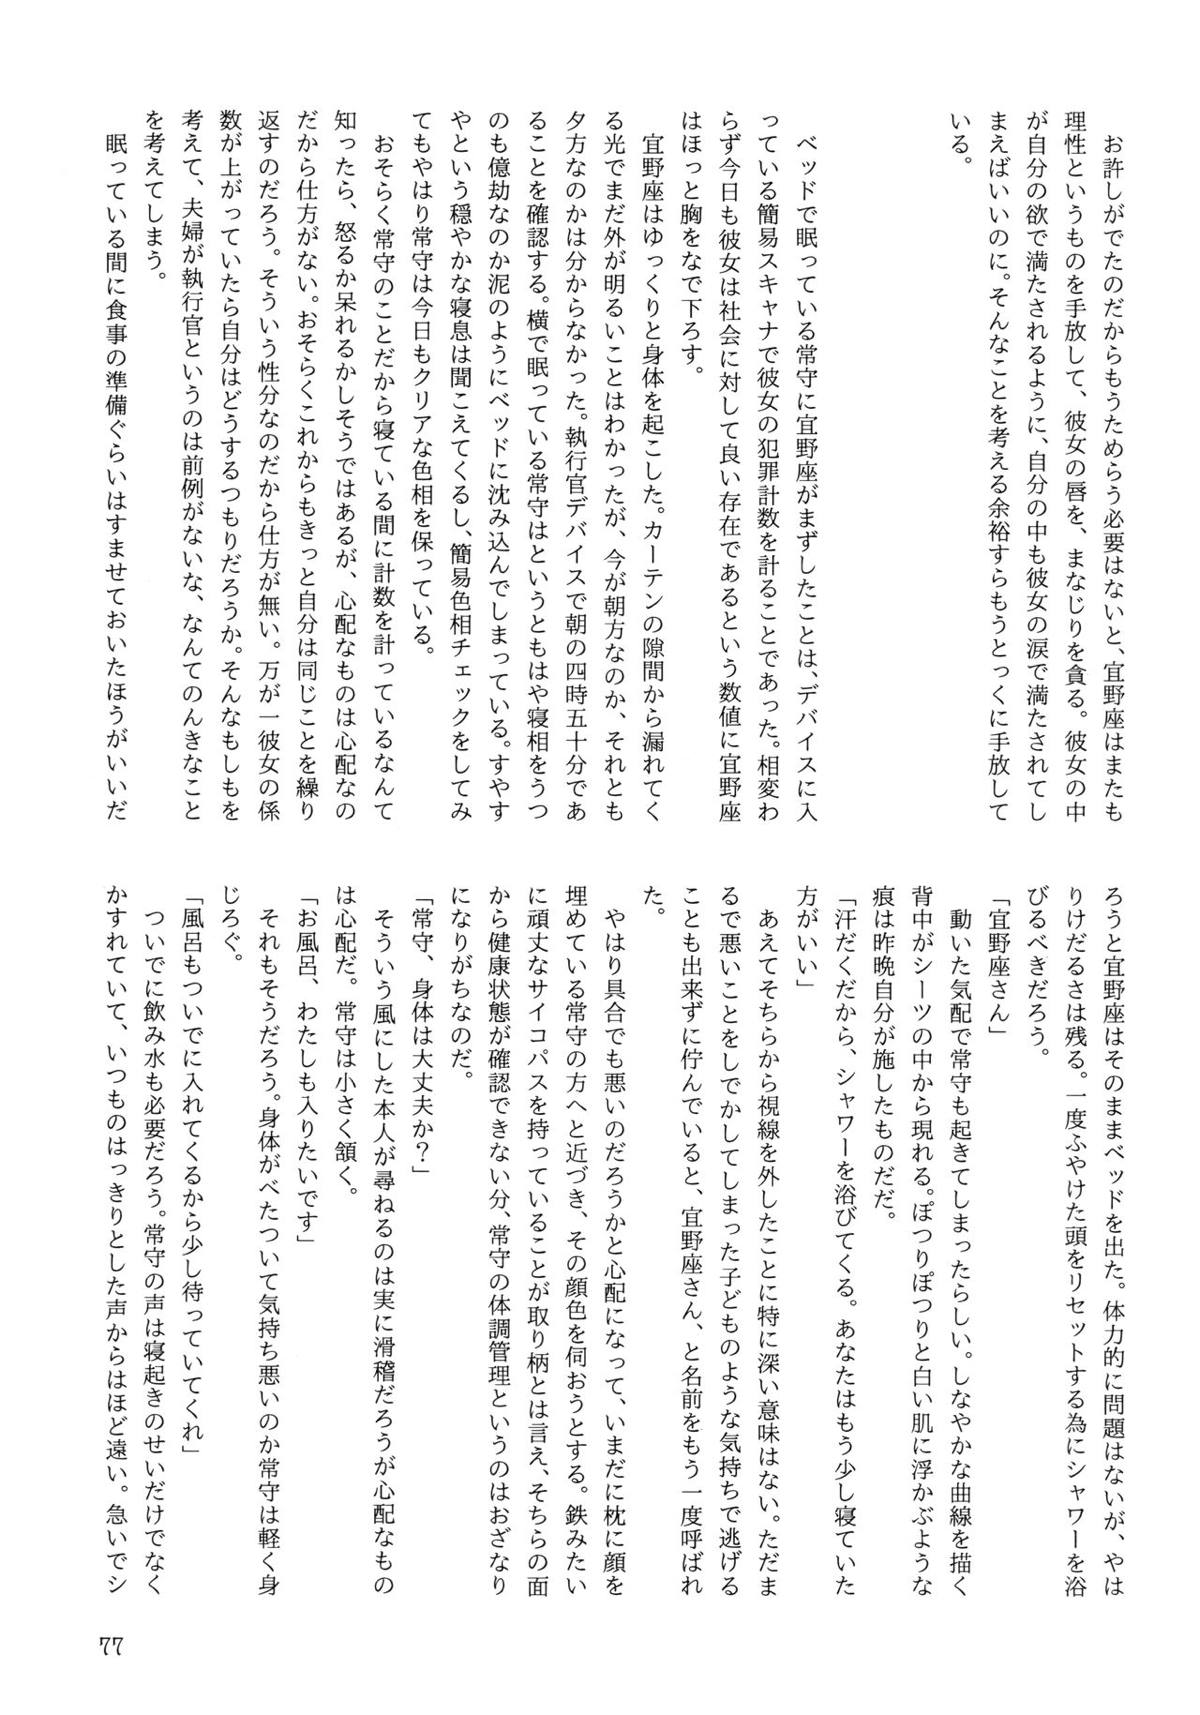 お許しがでたのだからもうためらう必要はないと、宜野座はまたも
理性というものを手放して、彼女の唇を、まなじりを貪る。彼女の中
が自分の欲で満たされるように、自分の中も彼女の涙で満たされてし
まえばいいのに。そんなことを考える余裕すらもうとっくに手放して
いる。
ベッドで眠っている常守に宜野座がまずしたことは、デバイスに入
っている簡易スキャナで彼女の犯罪計数を計ることであった。相変わ
らず今日も彼女は社会に対して良い存在であるという数値に宜野座
はほっと胸をなで下ろす。
宜野座はゆっくりと身体を起こした。カーテンの隙間から漏れてく
る光でまだ外が明るいことはわかったが、今が朝方なのか、それとも
夕方なのかは分からなかった。執行官デバイスで朝の四時五十分であ
ることを確認する。横で眠っている常守はというともはや寝相をうつ
のも億劫なのか泥のようにベッドに沈み込んでしまっている。すやす
やという穏やかな寝息は聞こえてくるし、簡易色相チェックをしてみ
てもやはり常守は今日もクリアな色相を保っている。
おそらく常守のことだから寝ている間に計数を計っているなんて
知ったら、怒るか呆れるかしそうではあるが、心配なものは心配なの
だから仕方がない。おそらくこれからもきっと自分は同じことを繰り
返すのだろう。そういう性分なのだから仕方が無い。万が一彼女の係
数が上がっていたら自分はどうするつもりだろうか。そんなもしもを
考えて、夫婦が執行官というのは前例がないな、なんてのんきなこと
を考えてしまう。
眠っている間に食事の準備ぐらいはすませておいたほうがいいだ
ろうと宜野座はそのままベッドを出た。体力的に問題はないが、やは
りけだるさは残る。一度ふやけた頭をリセットする為にシャワーを浴
びるべきだろう。
「宜野座さん」
動いた気配で常守も起きてしまったらしい。しなやかな曲線を描く
背中がシーツの中から現れる。ぽつりぽつりと白い肌に浮かぶような
痕は昨晩自分が施したものだだ。
「汗だくだから、シャワーを浴びてくる。あなたはもう少し寝ていた
方がいい」
あえてそちらから視線を外したことに特に深い意味はない。ただま
るで悪いことをしでかしてしまった子どものような気持ちで逃げる
ことも出来ずに佇んでいると、宜野座さん、と名前をもう一度呼ばれ
た。
やはり具合でも悪いのだろうかと心配になって、いまだに枕に顔を
埋めている常守の方へと近づき、その顔色を伺おうとする。鉄みたい
に頑丈なサイコパスを持っていることが取り柄とは言え、そちらの面
から健康状態が確認できない分、常守の体調管理というのはおざなり
になりがちなのだ。
「常守、身体は大丈夫か？」
そういう風にした本人が尋ねるのは実に滑稽だろうが心配なもの
は心配だ。常守は小さく頷く。
「お風呂、わたしも入りたいです」
それもそうだろう。身体がべたついて気持ち悪いのか常守は軽く身
じろぐ。
「風呂もついでに入れてくるから少し待っていてくれ」
ついでに飲み水も必要だろう。常守の声は寝起きのせいだけでなく
かすれていて、いつものはっきりとした声からはほど遠い。急いでシ
77